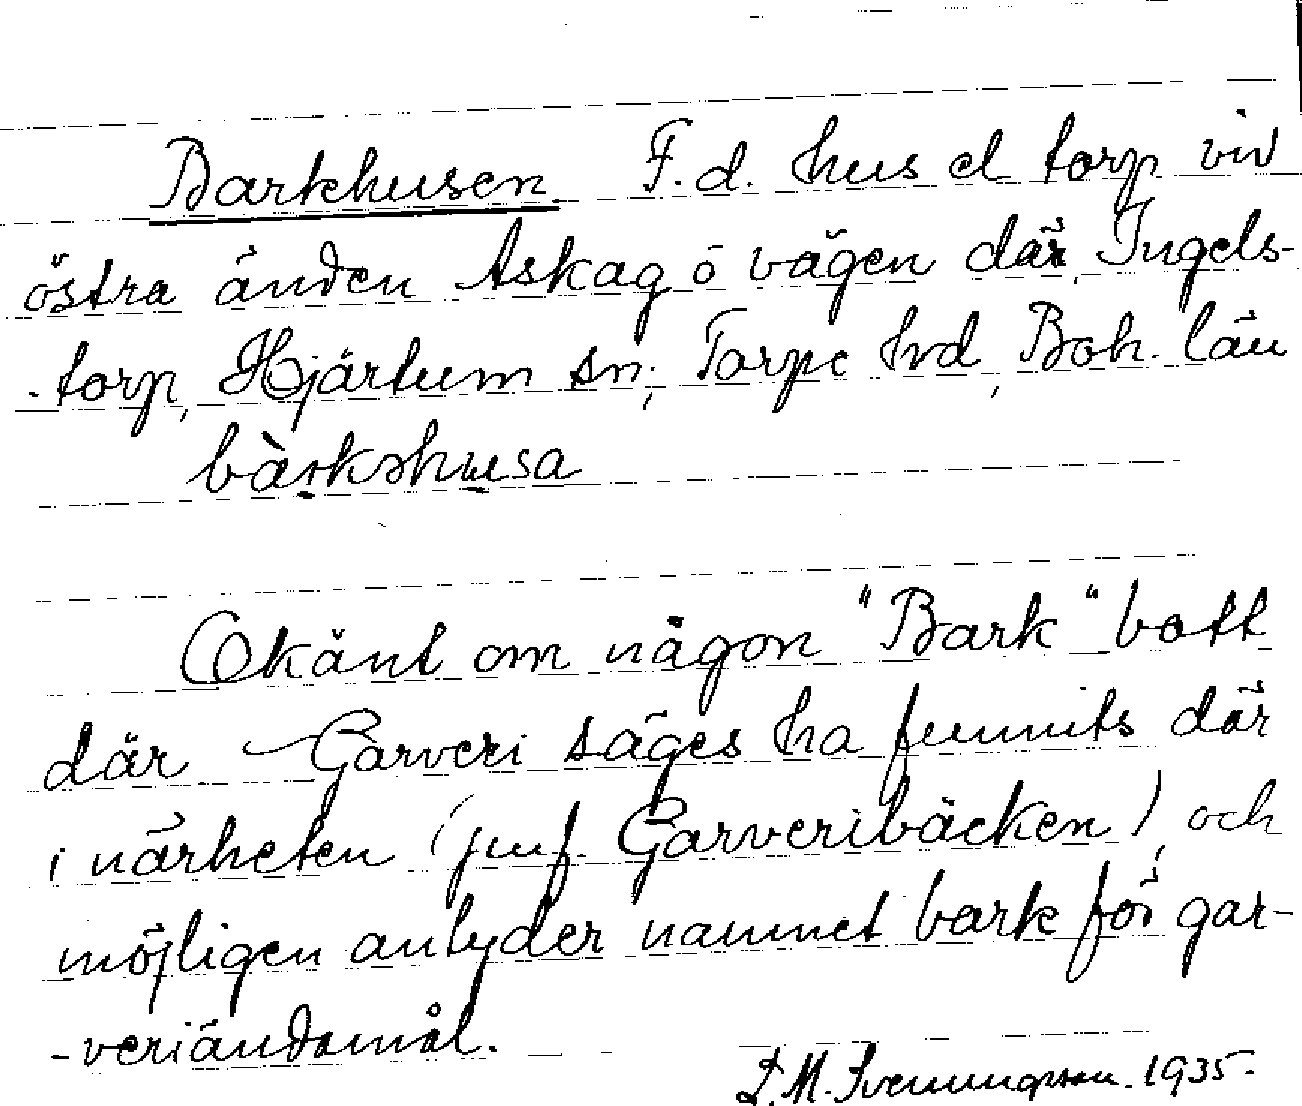 Barkhusen F.d. hus el torp vid
östra änden Askag o vägen där, Ingels-
-torp, Hjärtum sn, Torpe hd, Boh. län
bàrkshusa
Okänt om någon "Bark" bott
där – Garveri säges ha funnits där
i närheten (jmf. Garveribäcken), och
möjligen antyder namnet bark för gar-
-veriändamål.
L.M. Svenungsson. 1935.